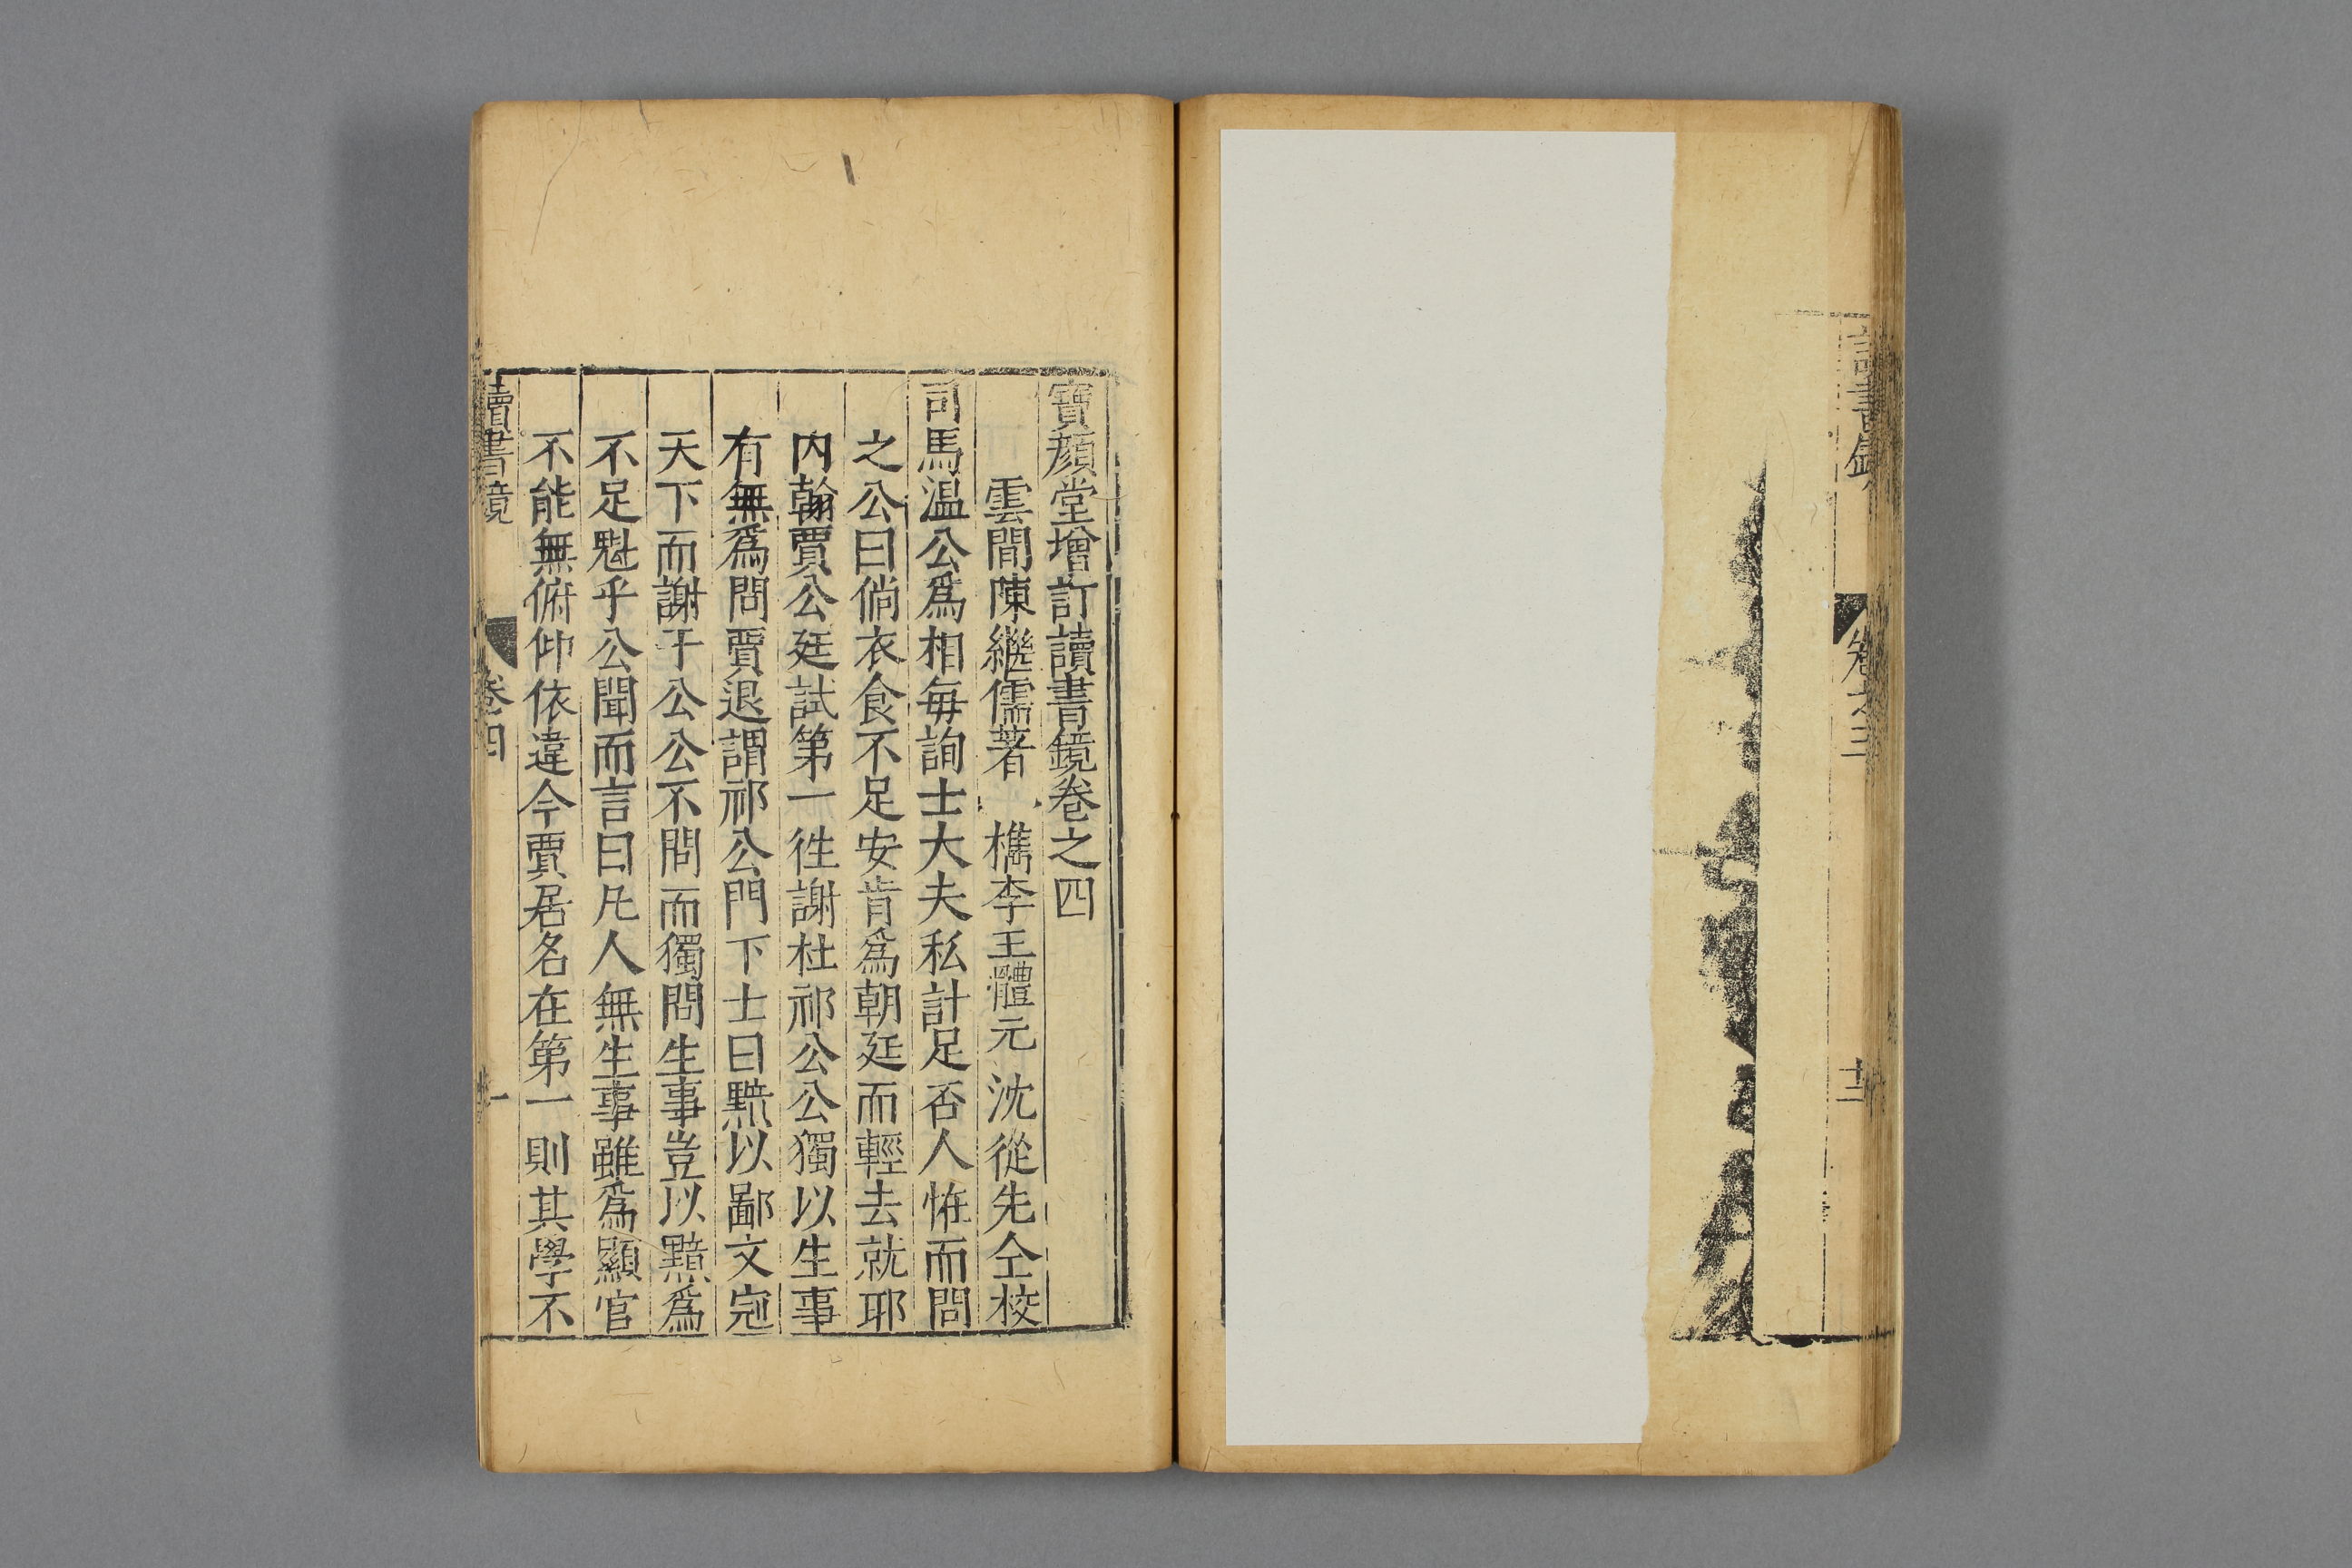 讀書鏡
卷之三
十二
寶顏堂增訂讀書鏡卷之四
雲間陳繼儒著 檇李王體元 沈從先仝校
司馬温公爲相每詢士大夫私計足否人恠而問
之公曰倘衣食不足安肯爲朝廷而輕去就耶
内翰賈公廷試第一徃謝杜祁公公獨以生事
有無爲問賈退謂祁公門下士曰黯以鄙文冠
天下而謝于公公不問而獨問生事豈以黯爲
不足魁乎公聞而言曰凡人無生事雖爲顯官
不能無俯仰依違今賈居名在第一則其學不
讀書鏡
卷四
一